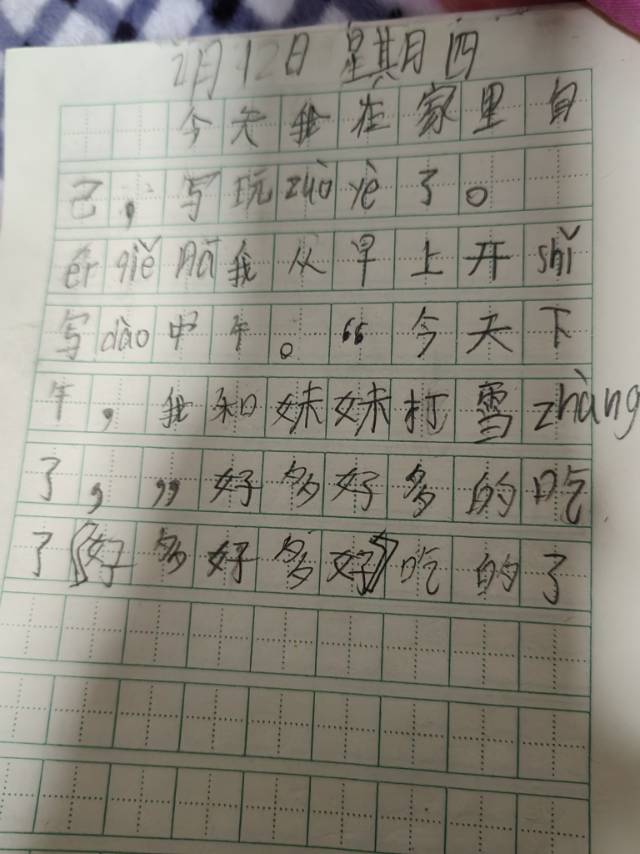 2月12日 星期四
今天我在家里自
己，写玩zuò yè了。
ér qiě 我从早上开shǐ
写dào中午。“今天下
午，我和妹妹打雪zhàng
了，”好多好多的吃
了《好多好多好》吃的了